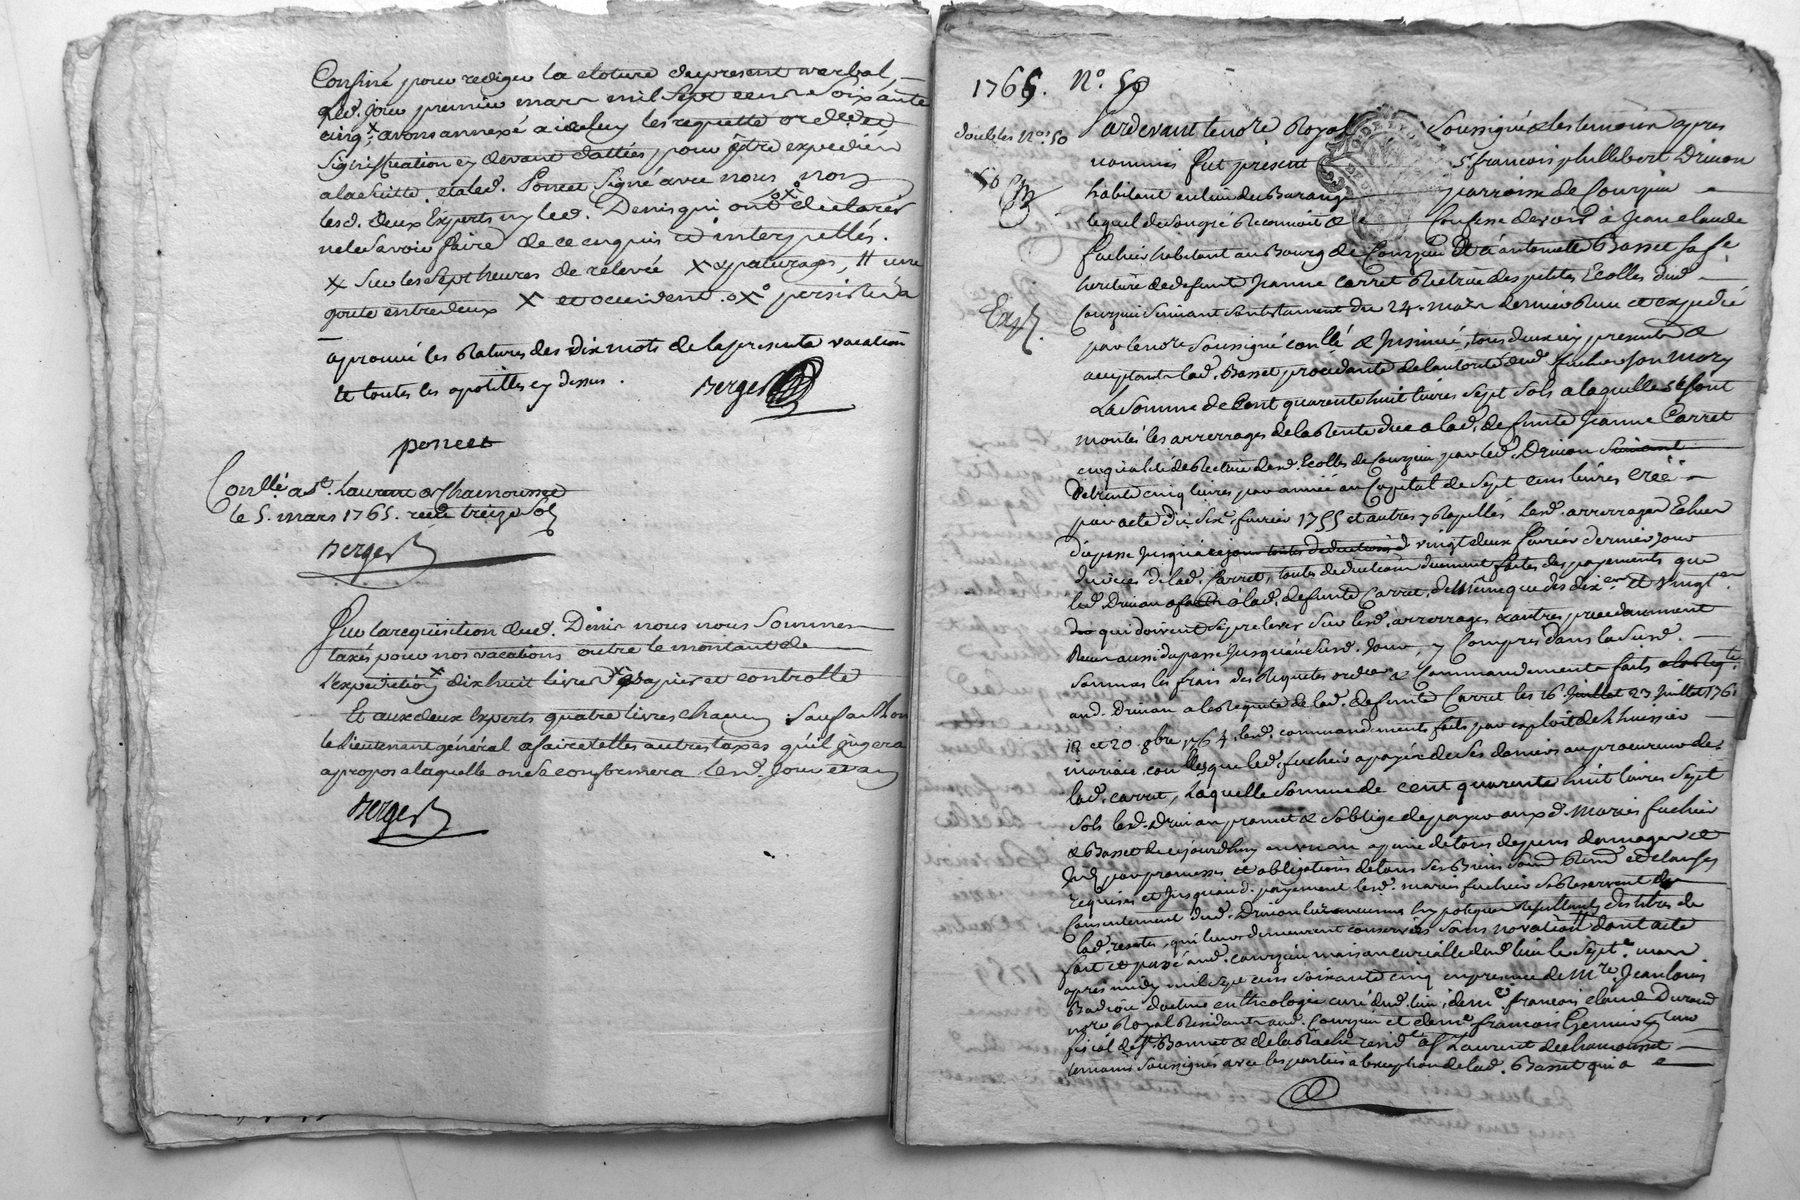 Confiné pour rediger la cloture du present verbal,
led. jour premier mars mil sept cent soixante
cinq, x avons annexé a icelluy les requette ordce et
signiffication cy devant dattées, pour être expediée
a la suitte, et a led. Poncet signé avec nous non
lesd. deux Experts ny led. Denis qui ont déclarés
ne le scavoir faire de ce enquis et interpellés.
x sur les sept heures de relevée x x paturages, # une
goute entredeux x et occident. ox° persisté a
aprouvé les ratures des dix mots de la presente vacation
et toutes les apostilles cy dessus. Berger
poncet
Conllé a St. Laurent de Chamousset
le 5. mars 1765. receu treize sols
Berger
Sur la requisition dud. Denis nous nous sommes
taxés pour nos vacations outre le montant de
l'expedition x dix huit livres papier et controlle
Et aux deux Experts quatre livres chacun, sauf a Mon
le lieutenant général a faire telles autres taxes qu'il jugera
a propos a laquelle on se conformera led. jour et an
Berger
1765. N.° 50
doubles N.os 50
Pardevant le nore Royal soussigné & les temoins apres
nommés fut présent sr. françois phillibert Drivon
habitant au lieu du Barange parroisse de Courzieu
lequel de son gré reconnoit & confesse devoir à Jean claude
fuchier habitant au Bourg de Courzieu et a antoinette Basset sa fe.
heritiere de defunte Jeanne Carret Rectrice des petites Ecolles dud.
Courzieu suivant son testament du 24. mars dernier Receu et expedié
Exp.
par le nore soussigné conllé & Insinué, tous deux icy presents &
acceptants lad. Basset procedante de l'autorité dud. fuchier son mary
La somme de Cent quarente huit livres sept sols a laquelle se sont
montés les arrerages de la rente due a lad. defunte Jeanne Carret
en qualité de Rectrice desd. Ecolles de Courzieu par led. Drivon suivant
de trente cinq livres par année au Capital de sept cens livres créé
par acte du six.e fevrier 1755 et autres y rapellés lesd. arrerages Echus
du passé jusqu'a ce jour toutes deductions d vingt deux fevrier dernier jour
du deces de lad. Carret, toutes deductions duement faites des payements que
led. Drivon a faits à lad. defunte Carret, de même que des dix.es et vingt.es
qui doivent se prelever sur lesd. arrerages & autres precedamment
Receus aussi du passé jusques aud. jour, y Compris dans la susd.
somme les frais des Requetes ordces & Commandements faits a la reqte.
aud. Drivon a la requete de lad. defunte Carret les 16 juillet 23 juillet 176
18 et 20 9bre 1764, lesd. commandements faits par exploit de l'huissier
que led. fuchier a payé de ses deniers au procureur de
lad. carret, laquelle somme de cent quarente huit livres sept
sols led. Drivon promet & s'oblige de payer auxd. mariés fuchier
& Basset de cejourdhuy en un an a peine de tous depens domages et
par promesses et obligations de tous ses Biens soumd. renond. et clauses
requises et jusqu'aud. payement lesd. mariés fuchier se reservent du
Consentement dud. Drivon les hypoteques resultants des titres de
lad. rente, qui leurs demeurent conservés sans novation dont acte
fait et passé aud. courzieu maison curialle dud. lieu le sept.e mars
apres midy mil sept cens soixante cinq en presence de Mre. Jean louis
docteur en theologie curé dud. lieu, de me. françois claude Durand
nore Royal Residant aud. Courzieu et de me. francois
fiscal de St. Bonnet & de la St. Laurent de chamousset
temoins soussignés avec les parties a l'exception de lad. Basset qui a